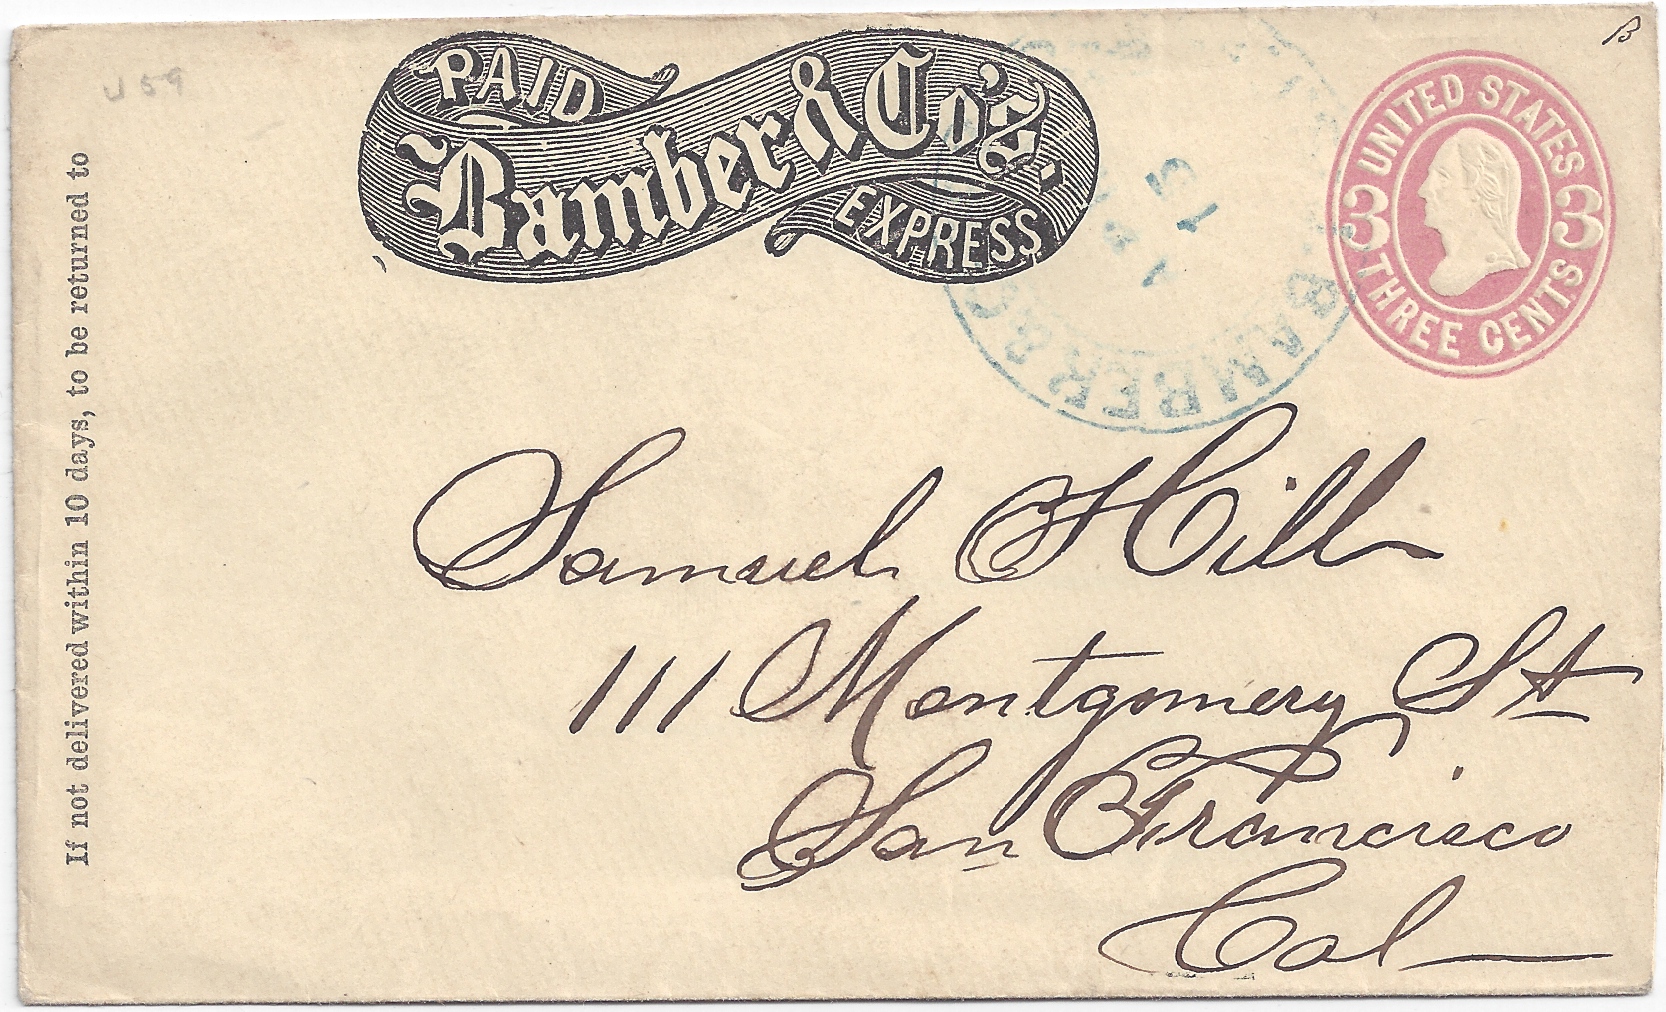 U59
B
PAID
Bamber & Co's.
EXPRESS
UNITED STATES
3 3
THREE CENTS
BAMBER & C
15
If not delivered within 10 days, to be returned to
Samuel Hill
111 Montgomery St
San Francisco
Cal